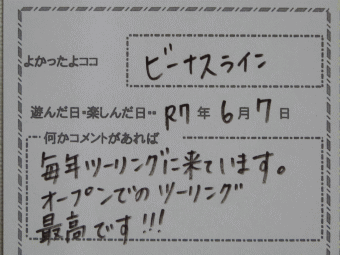 よかったよココ ビーナスライン
遊んだ日・楽しんだ日・・ R7年 6月 7日
何かコメントがあれば
毎年ツーリングに来ています。
オープンでのツーリング
最高です!!!